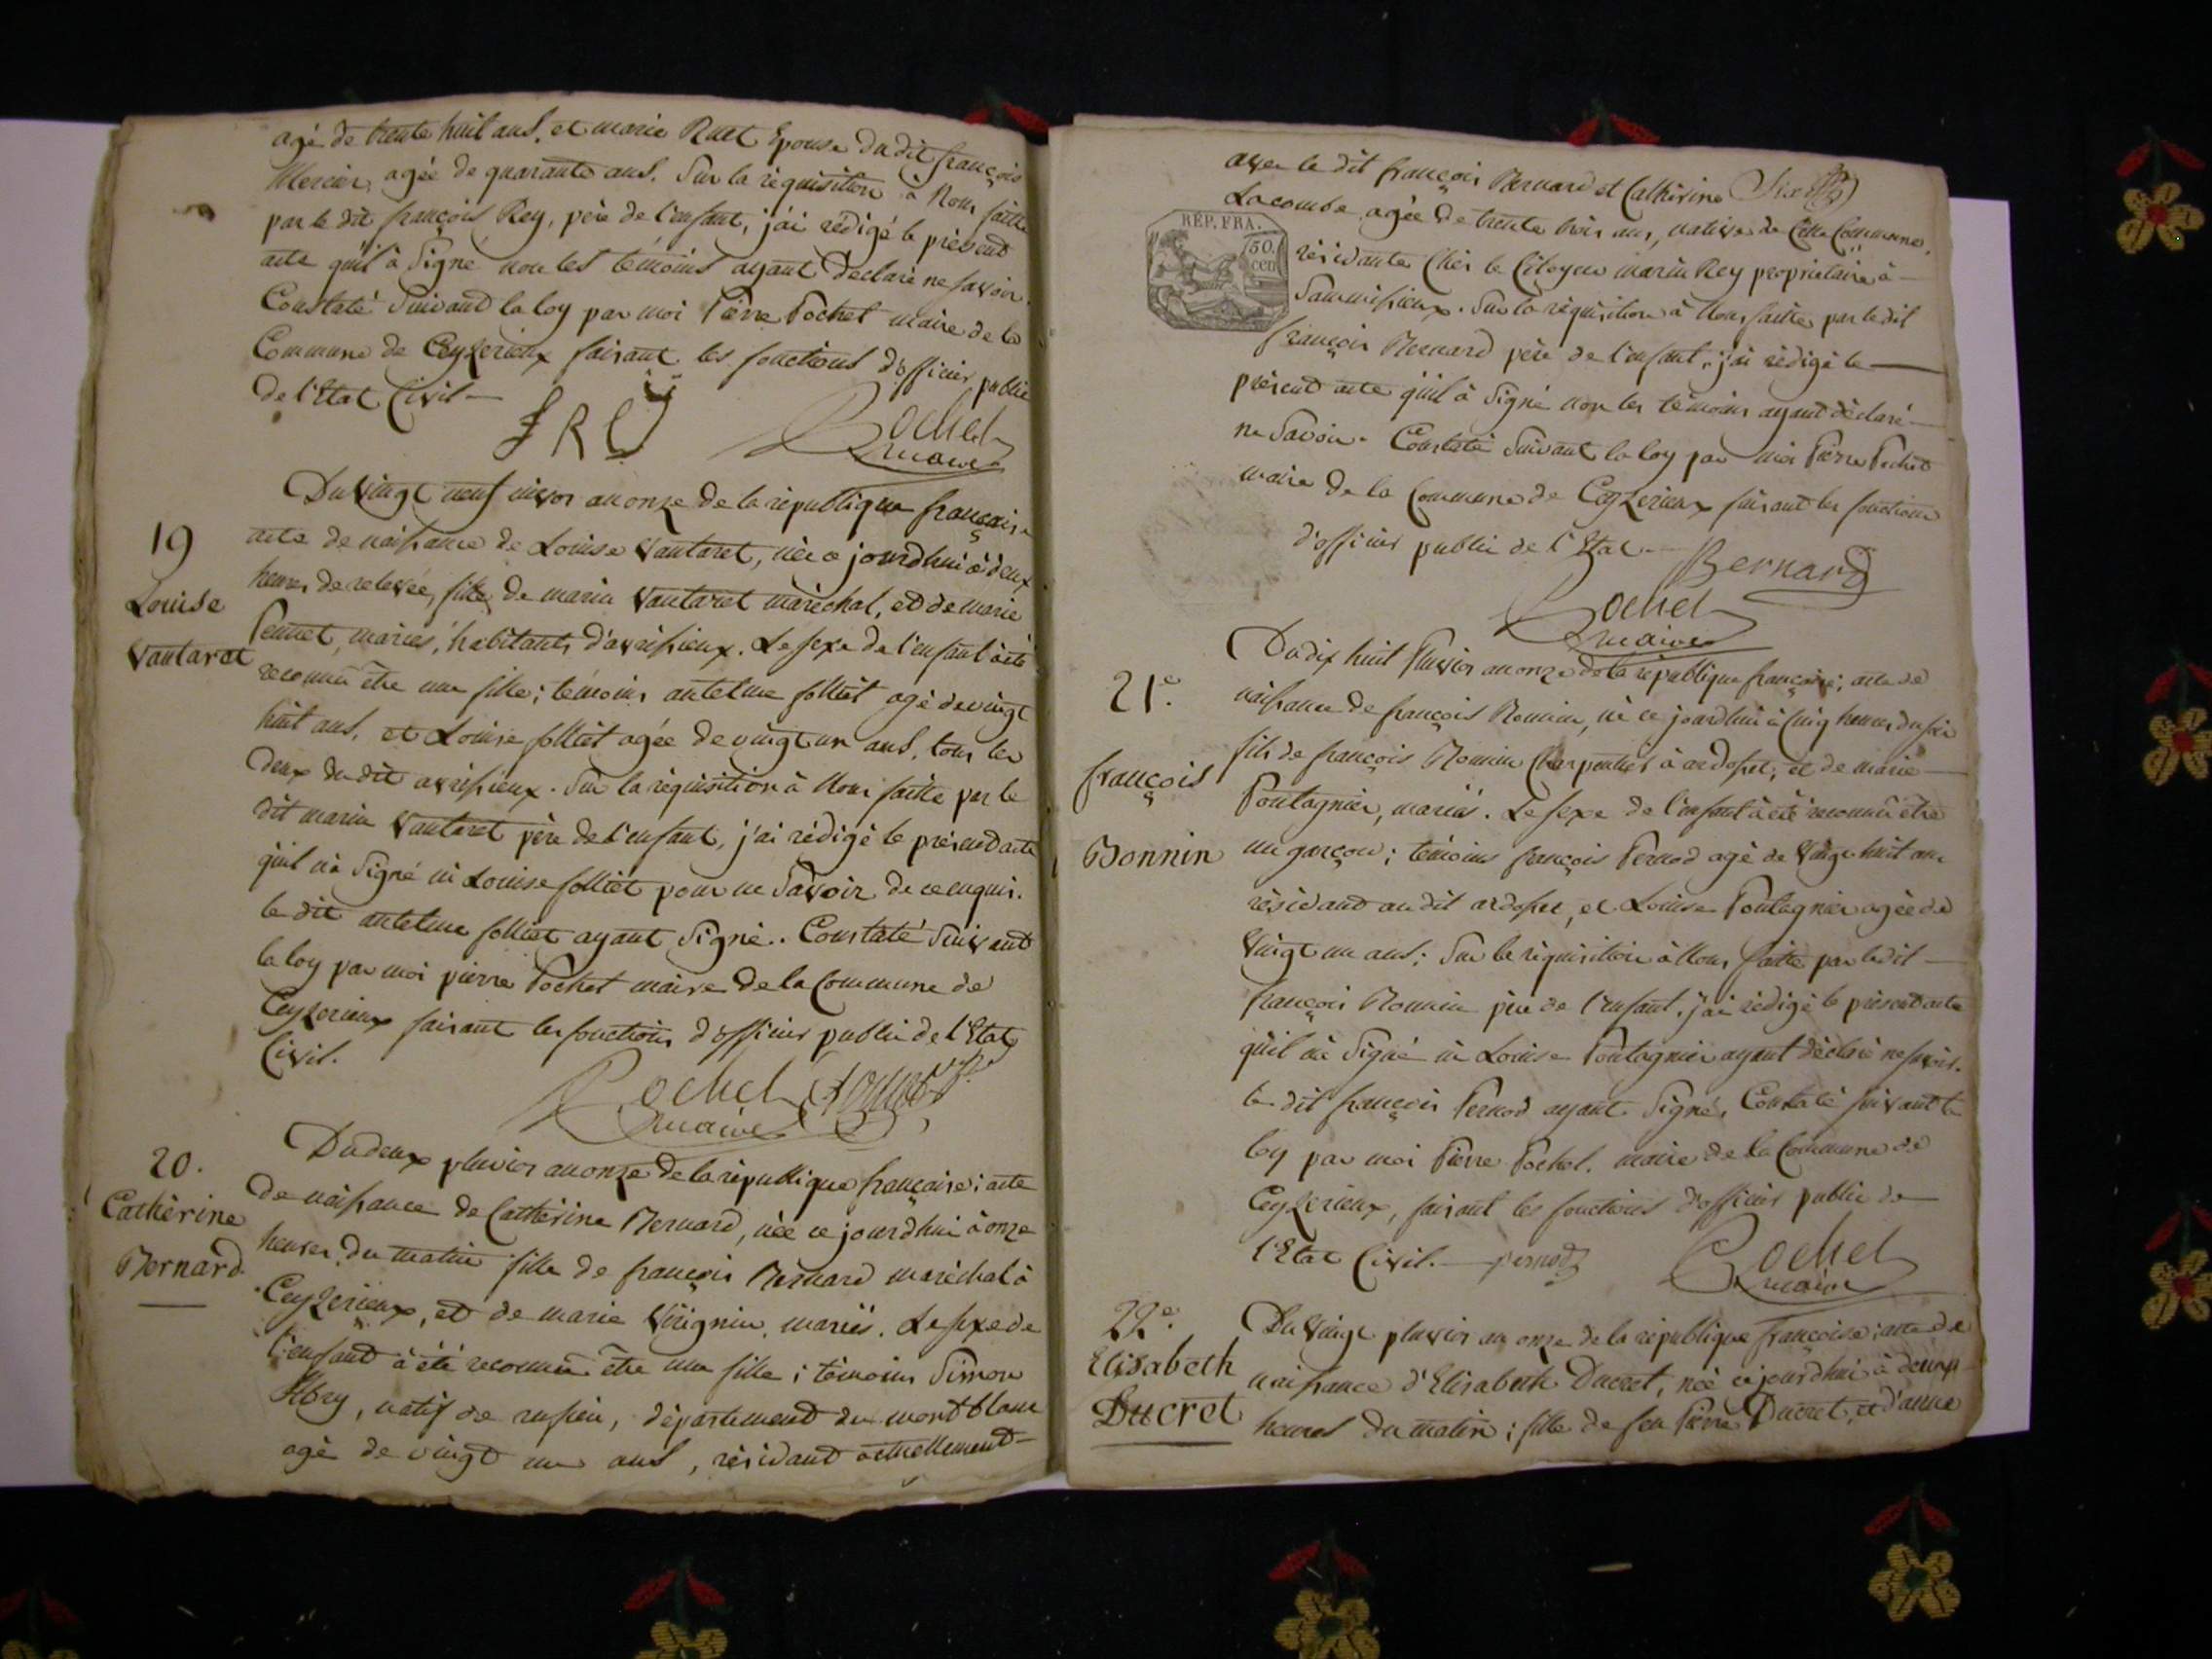 agé de trente huit ans, et marie Ruet Epouse du dit françois
Mercier, agée de quarante ans. Sur la réquisition à Nous faitte
par le dit françois Rey, père de l'enfant, j'ai rédigé le présent
acte qu'il à Signé non les témoins ayant déclaré ne savoir.
Constaté Suivand la loy par moi Pierre Pochet maire de la
Commune de Ceyzerieux faisant les fonctions d'officier public
de l'Etat Civil —
Pochet
maire
19
Louise
Vantaret
Du vingt neuf nivos an onze de la république française
acte de naissance de Louise Vantaret, née ce jourdhui à deux
heures de relevée, fille de marin Vantaret maréchal, et de marie
mariés, habitants d'avrissieux. Le sexe de l'enfant à été
reconnû être une fille; témoins antelme folliet agé de vingt
huit ans, et Louise folliet agée de vingt un ans, tous les
deux du dit avrissieux. Sur la réquisition à Nous faitte par le
dit marin Vantaret père de l'enfant, j'ai rédigé le présend acte
qu'il n'à Signé ni Louise folliet pour ne Savoir de ce enquis.
le dit antelme folliet ayant Signé.. Constaté Suivant
la loy par moi pierre Pochet maire de la Commune de
Ceyzerieux faisant les fonctions d'officier public de l'Etat
Civil.
Pochet
maire
20.
Cathèrine
Bernard
Du deux pluvios an onze de la république française; acte
de naissance de Cathèrine Bernard, née ce jourdhui à onze
heures du matin fille de françois Bernard maréchal à
Ceyzerieux, et de marie Virignin, mariés. Le sexe de
l'enfand à été reconnu être une fille; témoins Simon
natif de rufieu, département du montblanc
agé de vingt un ans, résidand actuellement
avec le dit françois Bernard et Cathèrine Six
Lacombe agée de trente trois ans, native de Cette Commune,
RÉP. FRA.
50.
cen
résidante Chés le Citoyen marin Rey propriétaire à —
Sammissieux. Sur la réquisition à Nous faitte par le dit
françois Bernard père de l'enfant, j'ai rédigé le —
présent acte qu'il à Signé non les témoins ayant déclaré —
ne Savoir. Constaté Suivant la loy par moi Pierre Pochet
maire de la Commune de Ceyzerieux faisant les fonctions
d'officier public de l'Etat —
Bernard
Pochet
maire
21e.
françois
Bonnin
Du dix huit Pluvios an onze de la république française; acte de
naissance de françois Bonnin, né ce jourdhui à Cinq heures du soir
fils de françois Bonnin Charpentier à ardosset, et de marie —
Pontagnier, mariés. Le sexe de l'enfant à été reconnû être
un garçon; témoins françois Pernod agé de Vingt huit ans
résidand au dit ardosset, et Louise Pontagnier agée de
Vingt un ans; Sur la réquisition à Nous faitte par le dit —
françois Bonnin père de l'enfant, j'ai rédigé le présent acte
qu'il n'à Signé ni Louise Pontagnier ayant déclaré ne savoir.
le dit françois Pernod ayant Signé, Constaté suivant la
loy par moi Pierre Pochet. maire de la Commune de
Ceyzerieux, faisant les fonctions d'officier public de —
l'Etat Civil. — pernod
Pochet
maire
22e.
Elisabeth
Ducret
Du Vingt pluvios an onze de la république françoise; acte de
naissance d'Elisabeth Ducret, née ce jourdhui à deux
heures du matin; fille de feu Pierre Ducret, et d'anne